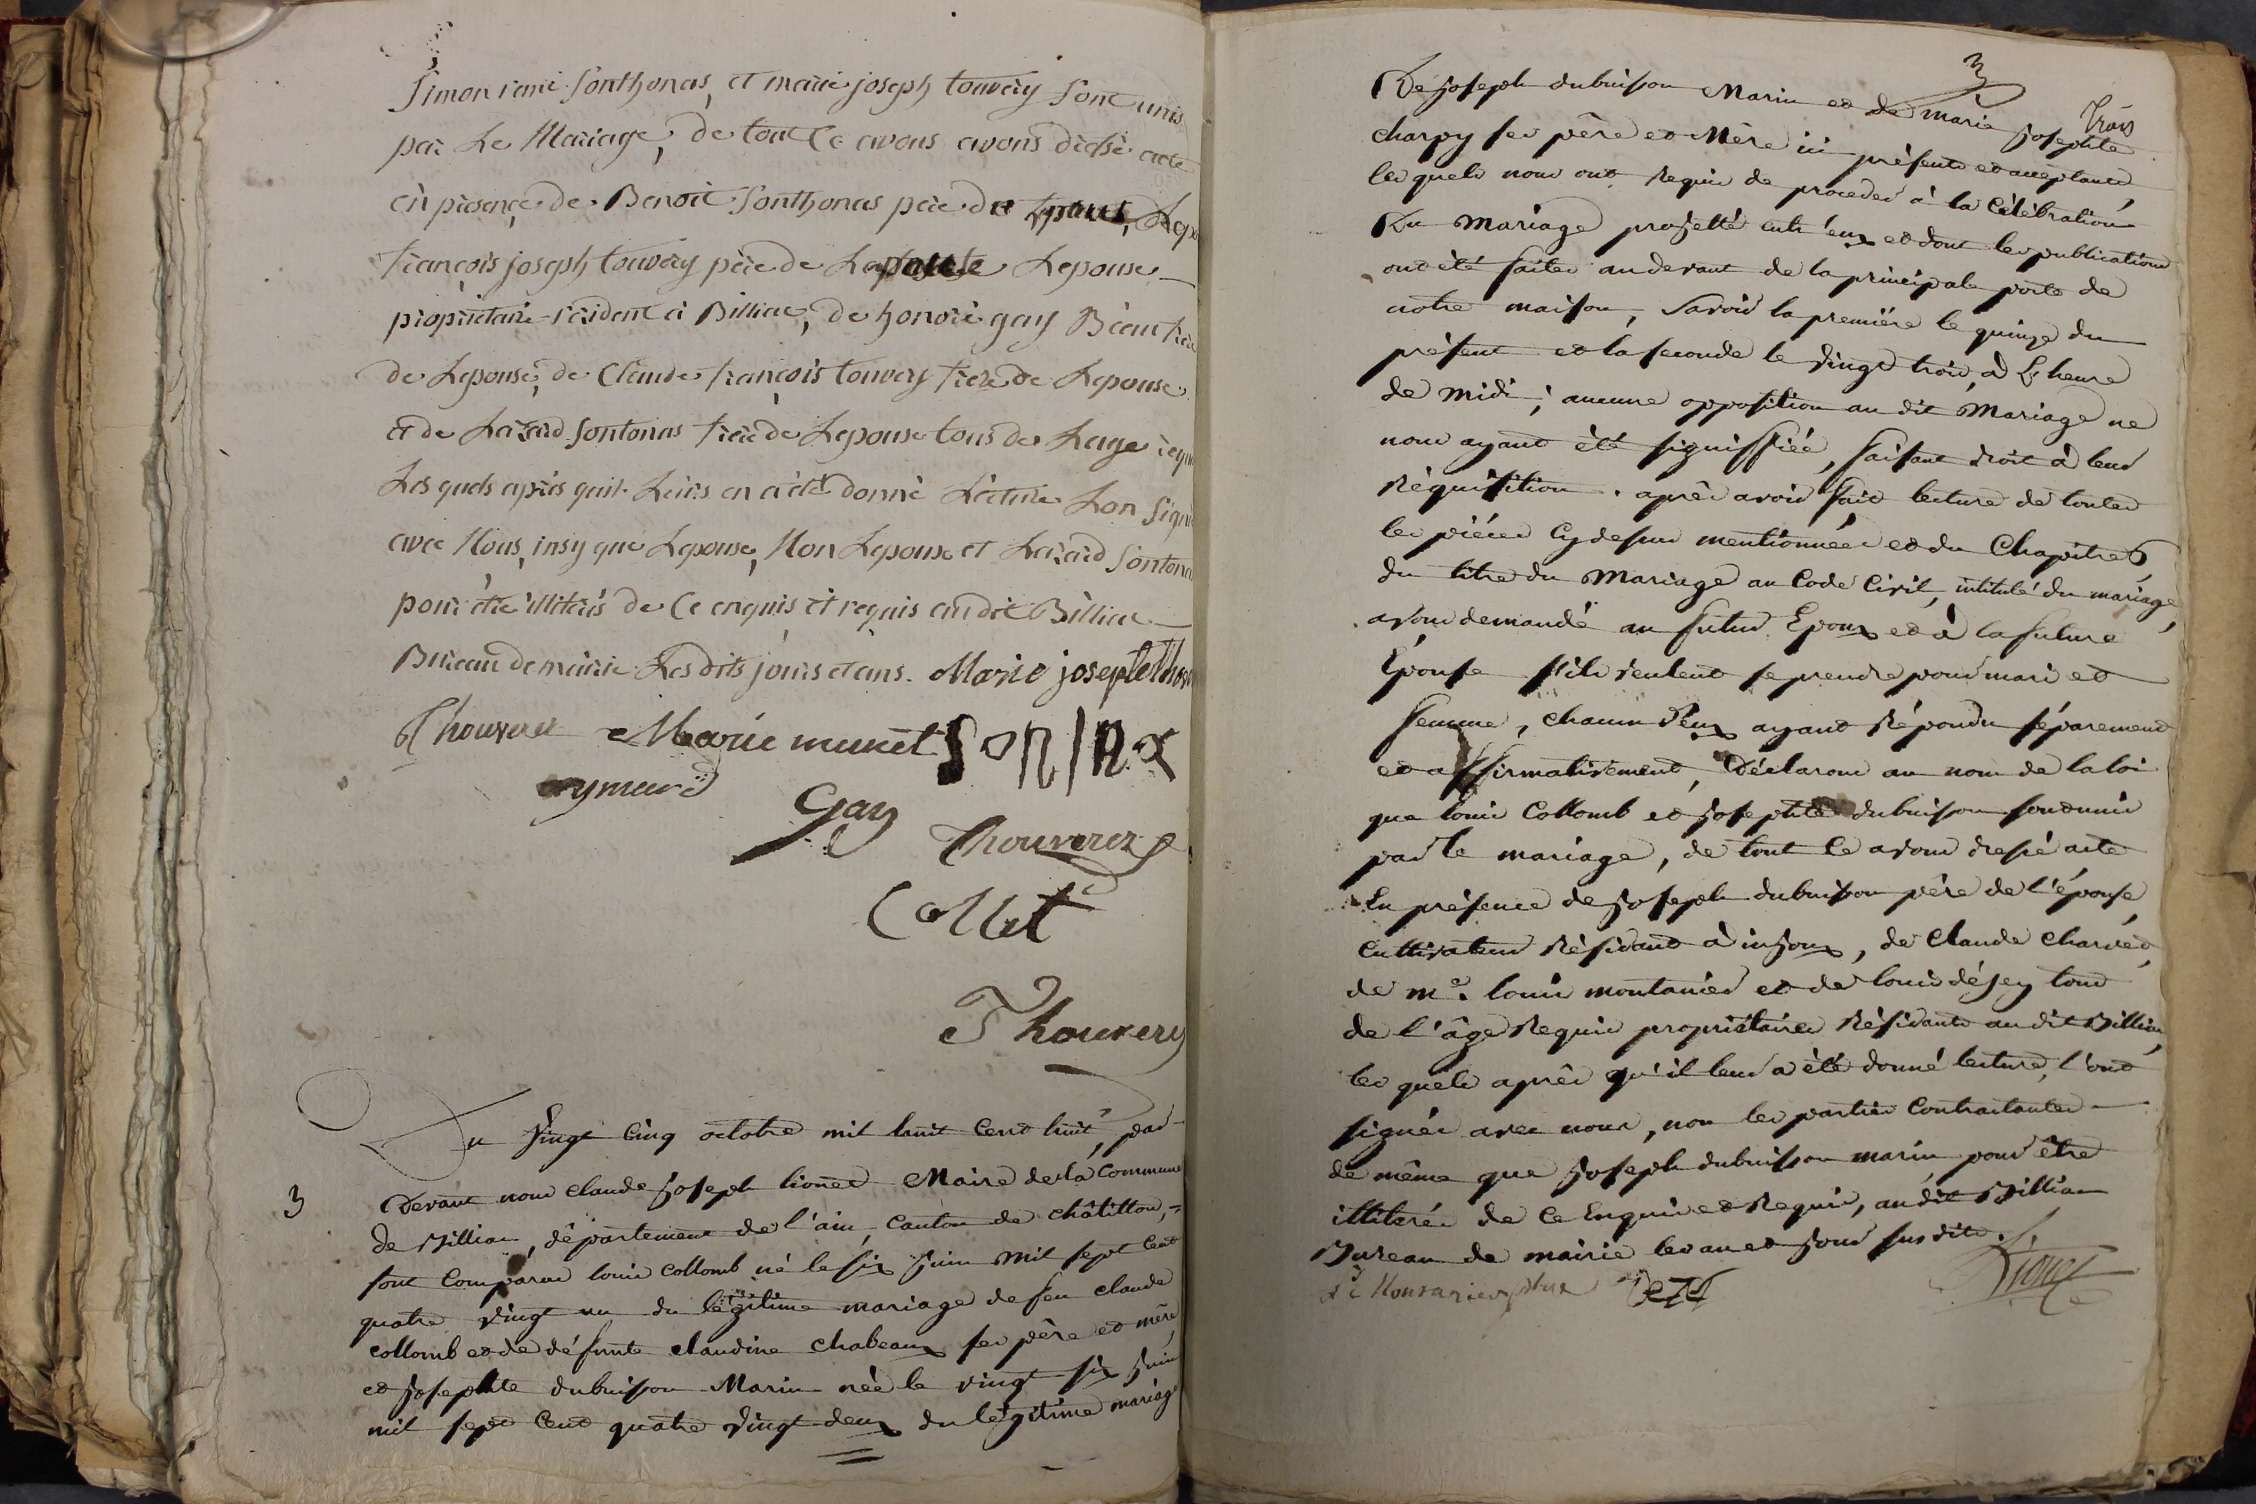 Simon René Sonthonas, et marie joseph touvery sont unis
par Le Mariage, de tout Ce avons avons dressé acte
en présence de Benoit Sonthonas père de Lep
françois joseph touvery père de Lepouse
propriétaire résidant à Billiat, de honoré gay Beau frère
de Lepouse, de Claude françois touvery frère de Lepouse
et de Lazard Sontonas frère de Lepouse tous de Lage requ
Les quels après quil Leurs en a été donné Lecture Lon signé
avec Nous, insy que Lepouse, Non Lepoux et Lazard Sontona
pour être illitérés de Ce enquis et requis au dit Billiat
Bureau de mairie Les dits jours et ans. Marie josephte thou
Thouverez Marie munet
aymard
Gay
Thouverez
Collet
Thouvery
3
Du vingt cinq octobre mil huit cent huit, par
devant nous Claude Joseph lionet Maire de la Commune
de Billiat, département de l'ain, Canton de châtillon,
sont Comparus louis Collomb né le six Juin mil sept cent
quatre vingt un du légitime mariage de feu claude
Collomb et de défunte claudine chabeaux ses père et mère,
et Josephte dubuisson Marin née le vingt six Juin
mil sept Cent quatre vingt deux du légitime mariage
3
Trois
De Joseph dubuisson Marin et de marie Josephte
charpy ses père et Mère ici présents et acceptants,
les quels nous ont requis de procéder à la Célébration
Du mariage projetté entr'eux et dont les publications
ont été faites au devant de la principale porte de
notre maison, Savoir la première le quinze du
présent et la seconde le vingt trois, à L'heure
de midi; aucune opposition au dit Mariage ne
nous ayant été signiffiée, faisant droit à leur
Réquisition. après avoir fait lecture de toutes
les pièces cy dessus mentionnées et du Chapitre 6
du titre du Mariage au Code Civil, intitulé du mariage,
avons demandé au futur Epoux et à la future
Epouse s'ils veulent se prendre pour mari et
femme, chacun d'eux ayant Répondu séparement
et affirmativement, Déclarons au nom de la loi
que louis Collomb et Josephte dubuisson sont unis
par le mariage, de tout Ce avons dressé acte
En présence de Joseph dubuisson père de l'épouse,
Cultivateur Résidant à injoux, de Claude Charvet,
de me. louis montanier et de louis déjey tous
de l'âge Requis propriétaires Résidants au dit Billiat,
les quels après qu'il leur a été donné lecture, l'ont
signés avec nous, non les parties Contractantes
de même que Joseph dubuisson marin pour être
illiterés de Ce Enquis et Requis, au dit Billiat
Bureau de mairie les an et Jour susdits.
Lionet